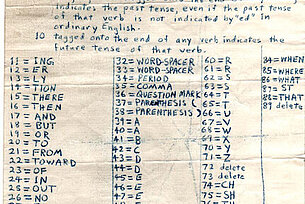 indicates the past tense, even if the past tense
of that verb is not indicated by "ed" in
ordinary English.
10 tagged onto the end of any verb indicates the
future tense of that verb.
11 = ING
12 = ER
14 = TION
15 = THERE
16 = THEN
17 = AND
18 = BUT
19 = OR
20 = TO
21 = FROM
22 = TOWARD
23 = OF
24 = IN
25 = OUT
26 = NO
32 = WORD-SPACER
33 = WORD-SPACER
34 = PERIOD
35 = COMMA
36 = QUESTION MARK
37 = PARENTHESIS (
38 = PARENTHESIS )
39 = A
40 = A
41 = B
42 = C
43 = D
44 = D
45 = E
46 = E
60 = R
61 = R
62 = S
63 = S
64 = T
65 = T
66 = U
67 = V
68 = W
69 = X
70 = Y
71 = Z
72 delete
73 delete
74 = CH
75 = SH
84 = WHEN
85 = WHERE
86 = WHAT
87 = ST
88 = THAT
89 delete